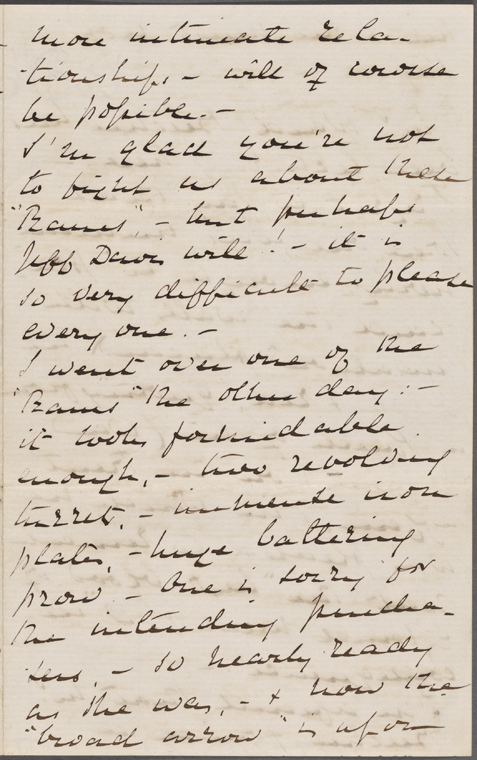 more intimate rela-
tionship, - will of course
be possible. -
I'm glad you're not
to fight us about these
"Rams", - but perhaps
Jeff Davis will! - it is
so very difficult to please
every one. -
I went over one of the
"Rams" the other day: -
it looks formidable
enough, - two revolving
turrets, - immense iron
plates, - huge battering
prow - One is sorry for
the intending purcha-
sers, - so nearly ready
as she was, - & now the
"broad arrow" is upon